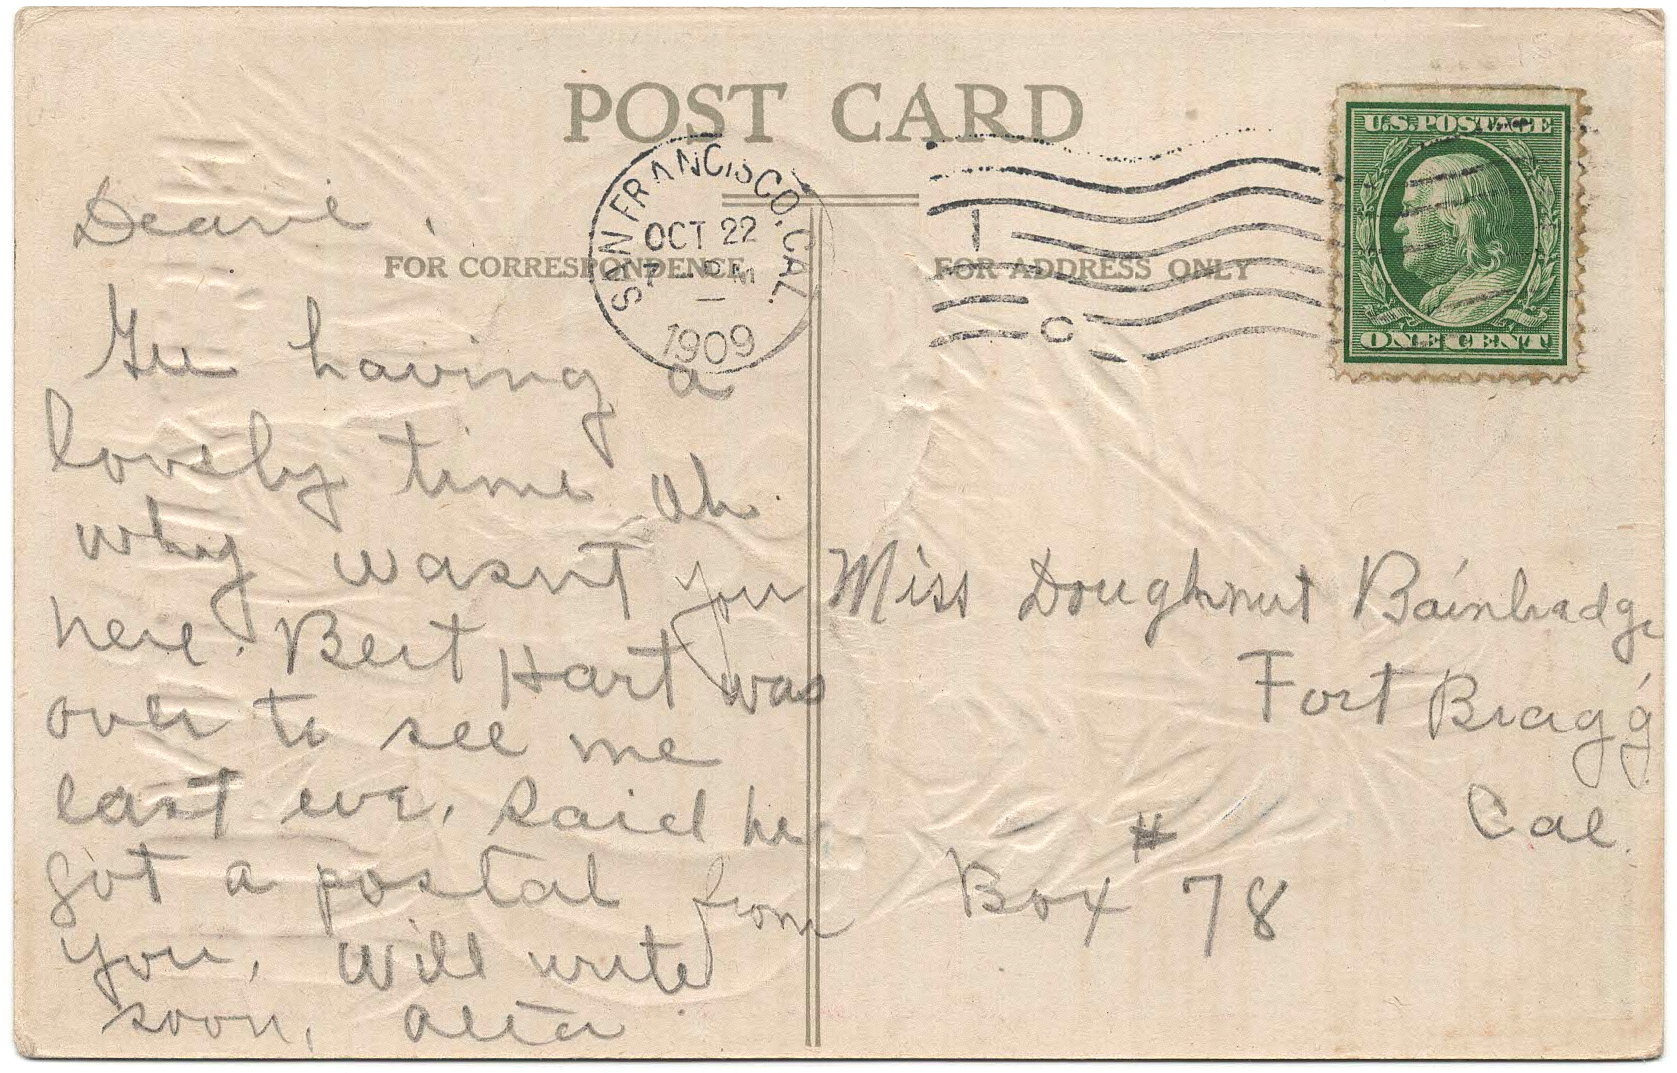 POST CARD
SAN FRANCISCO, CAL.
OCT 22
7 PM
1909
1
C
U.S. POSTAGE
ONE CENT
FOR CORRESPONDENCE
FOR ADDRESS ONLY
Dearie,
Gee having a
lovely time Oh
why wasnt you
here. Bert Hart was
over to see me
last eve. Said he
got a postal from
you. Will write
soon, Alta
Miss Doughnut Bainbradge
Fort Bragg
Cal.
Box # 78